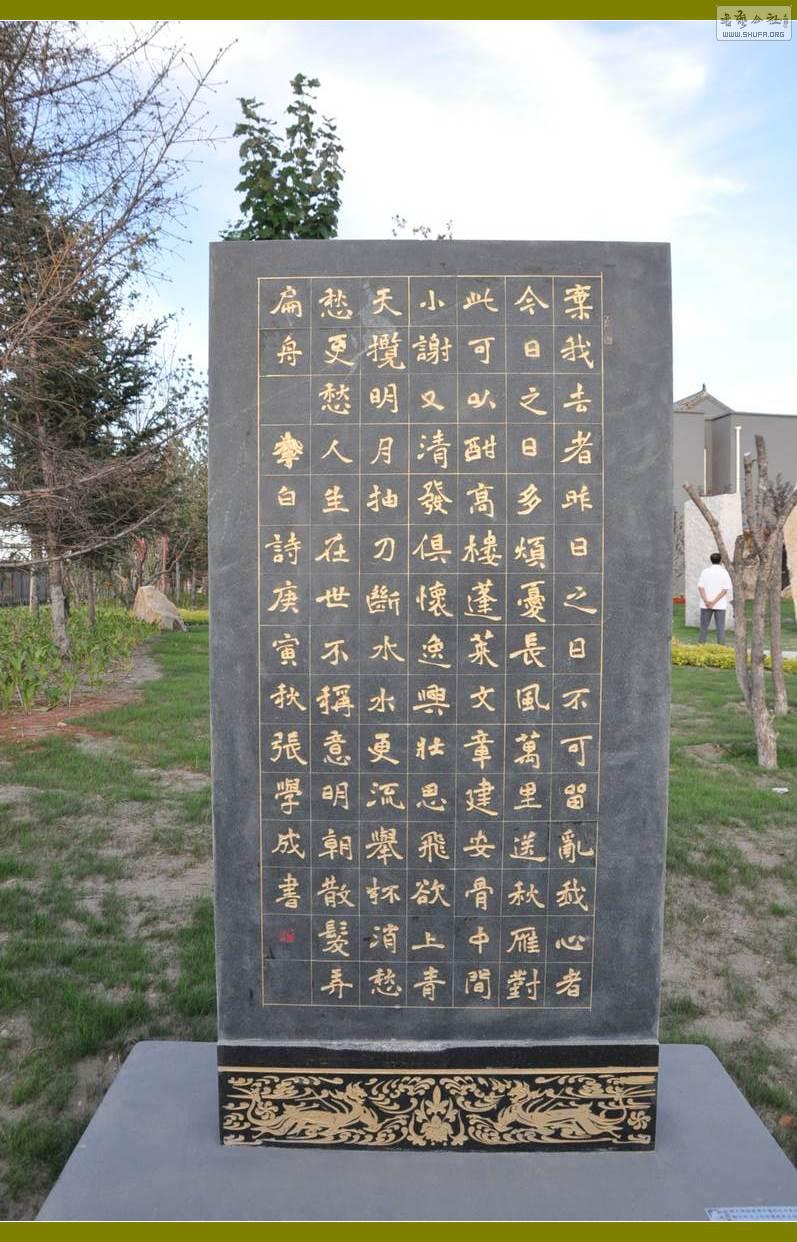 棄我去者昨日之日不可留亂我心者
今日之日多煩憂長風萬里送秋雁對
此可以酣高樓蓬萊文章建安骨中間
小謝又清發俱懷逸興壯思飛欲上青
天攬明月抽刀斷水水更流舉杯消愁
愁更愁人生在世不稱意明朝散髮弄
扁舟 李白詩庚寅秋張學成書
WWW.SHUFA.ORG